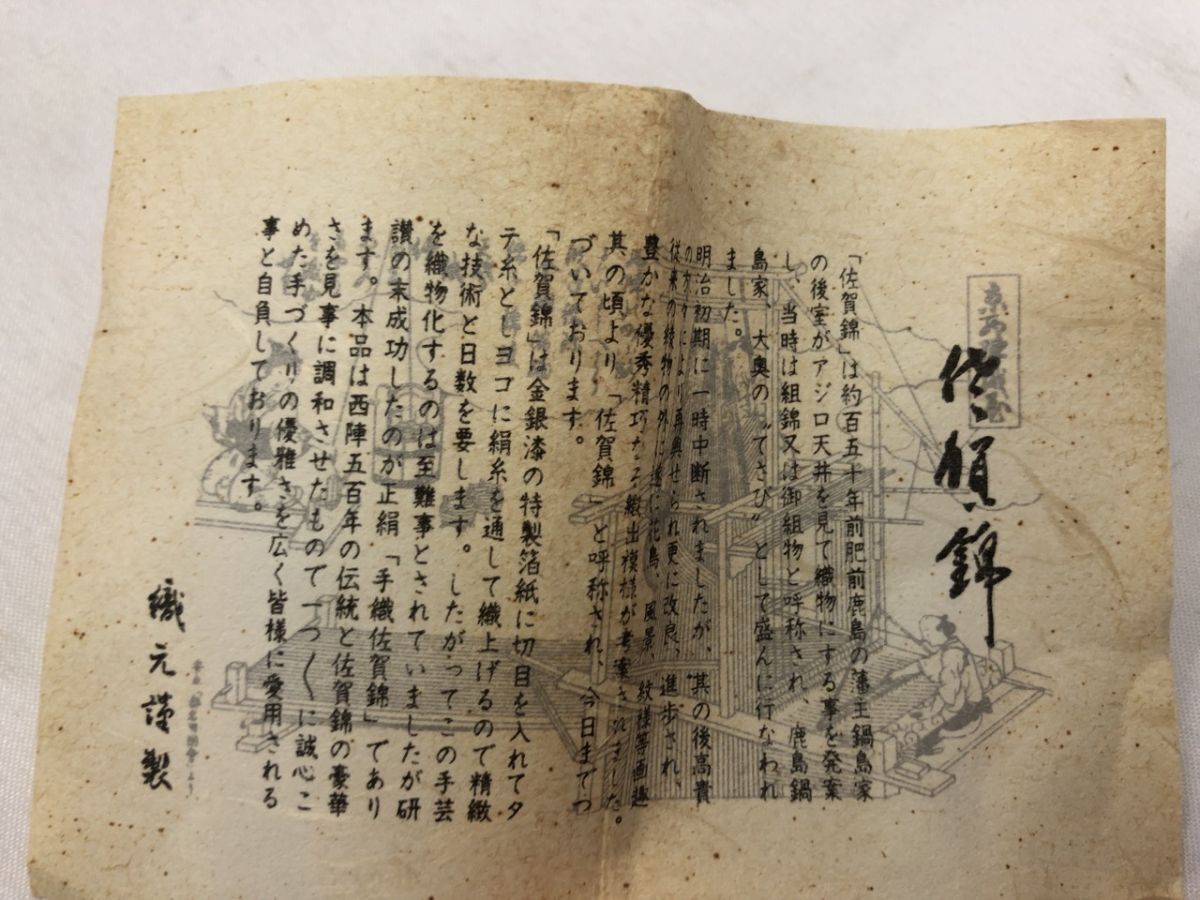 佐賀錦
「佐賀錦」は約百五十年前肥前鹿島の藩主鍋島家
の後室がアジロ天井を見て織物にする事を発案
し、当時は組錦又は御組物と呼称され、鹿島鍋
島家、大奥の〝てさび〟として盛んに行なわれ
ました。
明治初期に一時中断されましたが、其の後高貴
の方々により再興せられ更に改良、進歩され、
従来の織物の外に遂に花鳥、風景、紋様等画趣
豊かな優秀精巧なる織出模様が考案されました。
其の頃より「佐賀錦」と呼称され、今日までつ
づいております。
「佐賀錦」は金銀漆の特製箔紙に切目を入れてタ
テ糸としヨコに絹糸を通して織上げるので精緻
な技術と日数を要します。したがってこの手芸
を織物化するのは至難事とされていましたが研
讃の末成功したのが正絹「手織佐賀錦」であり
ます。本品は西陣五百年の伝統と佐賀錦の豪華
さを見事に調和させたもので一つ〱に誠心こ
めた手づくりの優雅さを広く皆様に愛用される
事と自負しております。
織元謹製